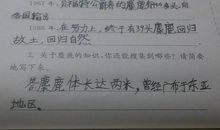 1967年,
中国输出
1986年,在努力上,终于有39头麋鹿回归
故土,回归自然
2. 关于麋鹿的知识,你还能搜集到哪些?请简要
地写下来。
答麋鹿体长达两米,曾经广布于东亚
地区。